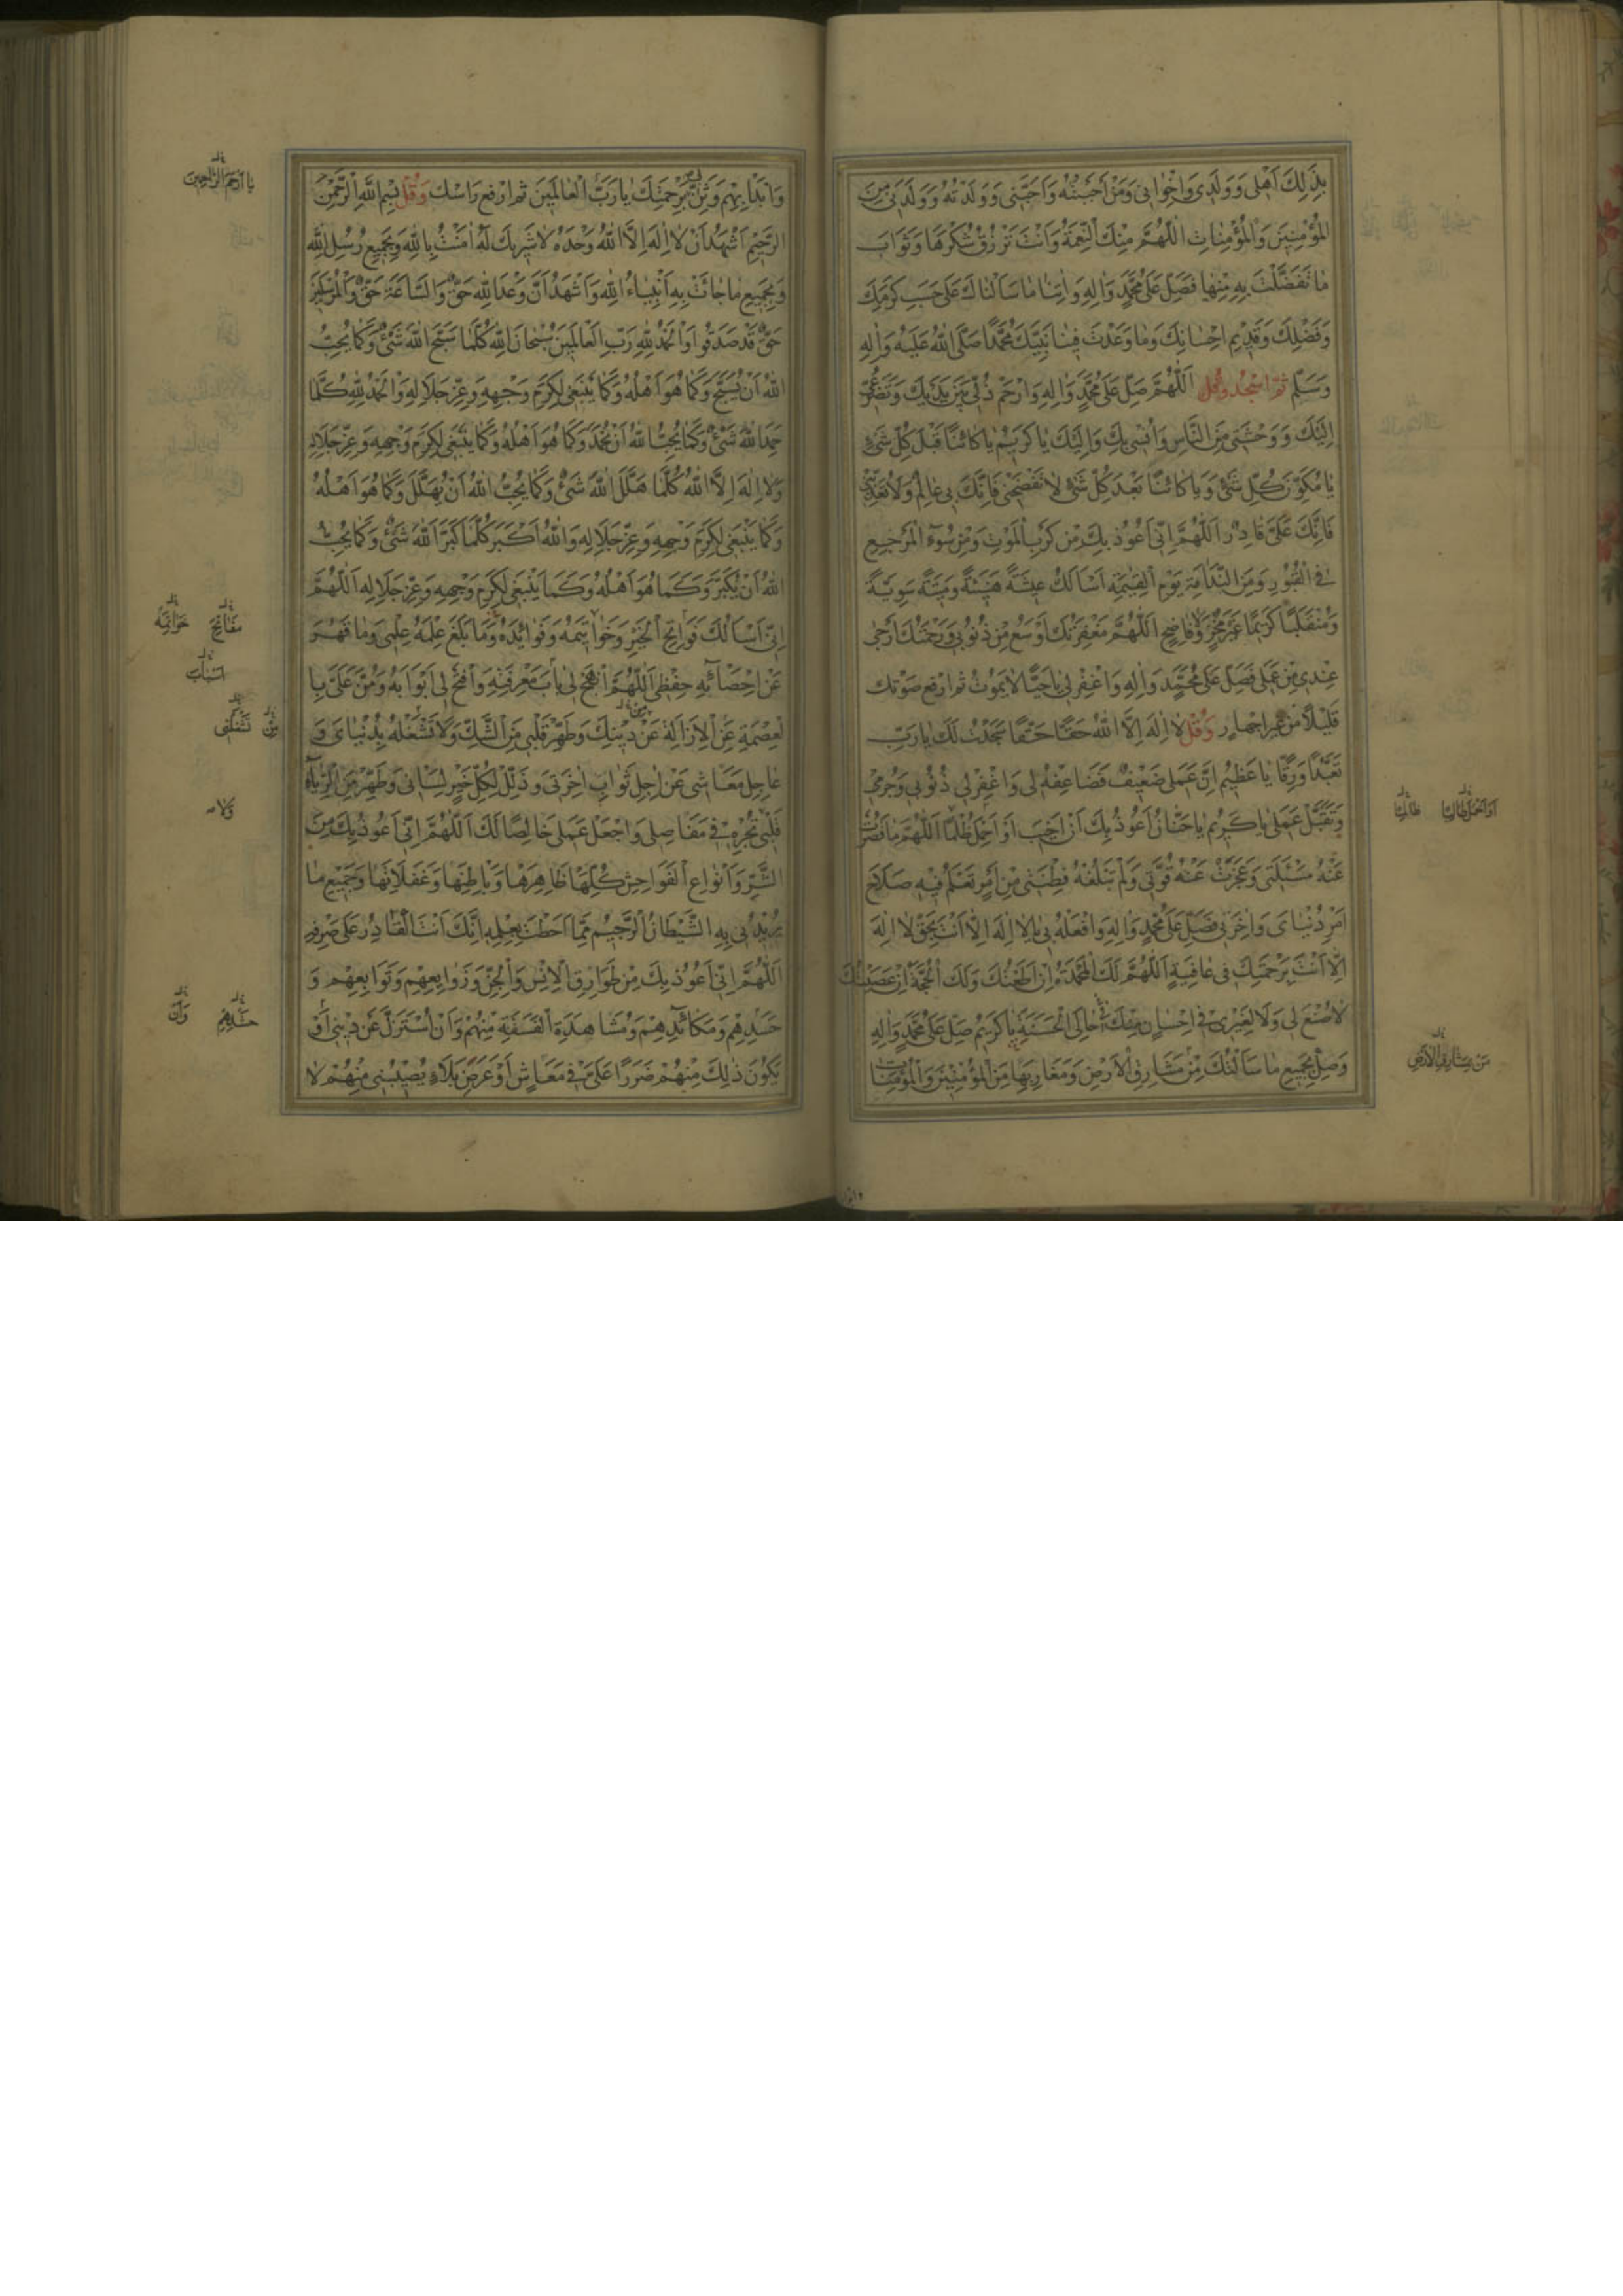 بِذٰلِكَ اَهْلِي وَوَلَدِي وَاِخْوَانِي وَمَنْ اَحْبَبْتُهُ وَاَحَبَّنِي وَوَلَدْتُهُ وَوَلَدَنِي مِنَ
الْمُؤْمِنِينَ وَالْمُؤْمِنَاتِ اَللّٰهُمَّ مِنْكَ النِّعْمَةُ وَاَنْتَ تَرْزُقُ شُكْرَهَا وَثَوَابَ
مَا تَفَضَّلْتَ بِهِ مِنْهَا فَصَلِّ عَلٰى مُحَمَّدٍ وَاٰلِهِ وَاٰتِنَا مَا سَاَلْنَاكَ عَلٰى حَسَبِ كَرَمِكَ
وَفَضْلِكَ وَقَدِيمِ اِحْسَانِكَ وَمَا وَعَدْتَ فِينَا نَبِيَّكَ مُحَمَّدًا صَلَّى اللّٰهُ عَلَيْهِ وَاٰلِهِ
وَسَلَّمَ ثُمَّ اسْجُدْ وَقُلْ اَللّٰهُمَّ صَلِّ عَلٰى مُحَمَّدٍ وَاٰلِهِ وَارْحَمْ ذُلِّي بَيْنَ يَدَيْكَ وَتَضَرُّعِي
اِلَيْكَ وَوَحْشَتِي مِنَ النَّاسِ وَاُنْسِي بِكَ وَاِلَيْكَ يَا كَرِيمُ يَا كَائِنًا قَبْلَ كُلِّ شَيْءٍ
يَا مُكَوِّنَ كُلِّ شَيْءٍ وَيَا كَائِنًا بَعْدَ كُلِّ شَيْءٍ لَا تَفْضَحْنِي فَاِنَّكَ بِي عَالِمٌ وَلَا تُعَذِّبْنِي
فَاِنَّكَ عَلَيَّ قَادِرٌ اَللّٰهُمَّ اِنِّي اَعُوذُ بِكَ مِنْ كَرْبِ الْمَوْتِ وَمِنْ سُوءِ الْمَرْجِعِ
فِي الْقُبُورِ وَمِنَ النَّدَامَةِ يَوْمَ الْقِيٰمَةِ اَسْاَلُكَ عِيشَةً هَنِيئَةً وَمِيتَةً سَوِيَّةً
وَمُنْقَلَبًا كَرِيمًا غَيْرَ مُخْزٍ وَلَا فَاضِحٍ اَللّٰهُمَّ مَغْفِرَتُكَ اَوْسَعُ مِنْ ذُنُوبِي وَرَحْمَتُكَ اَرْجٰى
عِنْدِي مِنْ عَمَلِي فَصَلِّ عَلٰى مُحَمَّدٍ وَاٰلِهِ وَاغْفِرْ لِي يَا حَيًّا لَا يَمُوتُ ثم ارفع صَوْتَك
قَلِيْلًا مِنْ غَيْرِ اِجْهَارٍ وَقُلْ لَا اِلٰهَ اِلَّا اللّٰهُ حَقًّا حَقًّا سَجَدْتُ لَكَ يَا رَبِّ
تَعَبُّدًا وَرِقًّا يَا عَظِيمُ اِنَّ عَمَلِي ضَعِيفٌ فَضَاعِفْهُ لِي وَاغْفِرْ لِي ذُنُوبِي وَجُرْمِي
وَتَقَبَّلْ عَمَلِي يَا كَرِيمُ يَا حَنَّانُ اَعُوذُ بِكَ اَنْ اَخِيبَ اَوْ اَحْمِلَ ظُلْمًا اَللّٰهُمَّ مَا قَصُرَتْ
اَوْ اَحْمِلَ ظَالِمًا
عَنْهُ مَسْئَلَتِي وَعَجَزَتْ عَنْهُ قُوَّتِي وَلَمْ تَبْلُغْهُ فِطْنَتِي مِنْ اَمْرٍ تَعْلَمُ فِيهِ صَلَاحَ
اَمْرِ دُنْيَايَ وَاٰخِرَتِي فَصَلِّ عَلٰى مُحَمَّدٍ وَاٰلِهِ وَافْعَلْهُ بِي يَا لَا اِلٰهَ اِلَّا اَنْتَ بِحَقِّ لَا اِلٰهَ
اِلَّا اَنْتَ بِرَحْمَتِكَ فِي عَافِيَةٍ اَللّٰهُمَّ لَكَ الْمَحْمَدَةُ اِنْ اَطَعْتُكَ وَلَكَ الْحُجَّةُ اِنْ عَصَيْتُكَ
لَا صُنْعَ لِي وَلَا لِغَيْرِي فِي اِحْسَانٍ مِنْكَ حَالِيَ الْحَسَنَةِ يَا كَرِيمُ صَلِّ عَلٰى مُحَمَّدٍ وَاٰلِهِ
وَصِلْ بِجَمِيعِ مَا سَاَلْتُكَ مِنْ مَشَارِقِ الْاَرْضِ وَمَغَارِبِهَا مِنَ الْمُؤْمِنِينَ وَالْمُؤْمِنَاتِ
وَابْدَأْ بِهِمْ وَثَنِّ بِي بِرَحْمَتِكَ يَا رَبَّ الْعَالَمِينَ ثم ارفع رَاسَك وَقُلْ بِسْمِ اللّٰهِ الرَّحْمٰنِ
يَا اَرْحَمَ الرَّاحِمِينَ
الرَّحِيمِ اَشْهَدُ اَنْ لَا اِلٰهَ اِلَّا اللّٰهُ وَحْدَهُ لَا شَرِيكَ لَهُ اٰمَنْتُ بِاللّٰهِ وَبِجَمِيعِ رُسُلِ اللّٰهِ
وَبِجَمِيعِ مَا جَائَتْ بِهِ اَنْبِيَاءُ اللّٰهِ وَاَشْهَدُ اَنَّ وَعْدَ اللّٰهِ حَقٌّ وَالسَّاعَةَ حَقٌّ وَالْمُرْسَلِينَ
حَقٌّ قَدْ صَدَقُوا وَالْحَمْدُ لِلّٰهِ رَبِّ الْعَالَمِينَ سُبْحَانَ اللّٰهِ كُلَّمَا سَبَّحَ اللّٰهَ شَيْءٌ وَكَمَا يُحِبُّ
اللّٰهُ اَنْ يُسَبَّحَ وَكَمَا هُوَ اَهْلُهُ وَكَمَا يَنْبَغِي لِكَرَمِ وَجْهِهِ وَعِزِّ جَلَالِهِ وَالْحَمْدُ لِلّٰهِ كُلَّمَا
حَمِدَ اللّٰهَ شَيْءٌ وَكَمَا يُحِبُّ اللّٰهُ اَنْ يُحْمَدَ وَكَمَا هُوَ اَهْلُهُ وَكَمَا يَنْبَغِي لِكَرَمِ وَجْهِهِ وَعِزِّ جَلَالِهِ
وَلَا اِلٰهَ اِلَّا اللّٰهُ كُلَّمَا هَلَّلَ اللّٰهَ شَيْءٌ وَكَمَا يُحِبُّ اللّٰهُ اَنْ يُهَلَّلَ وَكَمَا هُوَ اَهْلُهُ
وَكَمَا يَنْبَغِي لِكَرَمِ وَجْهِهِ وَعِزِّ جَلَالِهِ وَاللّٰهُ اَكْبَرُ كُلَّمَا كَبَّرَ اللّٰهَ شَيْءٌ وَكَمَا يُحِبُّ
اللّٰهُ اَنْ يُكَبَّرَ وَكَمَا هُوَ اَهْلُهُ وَكَمَا يَنْبَغِي لِكَرَمِ وَجْهِهِ وَعِزِّ جَلَالِهِ اَللّٰهُمَّ
اِنِّي اَسْاَلُكَ فَوَاتِحَ الْخَيْرِ وَخَوَاتِيمَهُ وَفَوَائِدَهُ وَمَا بَلَغَ عِلْمَهُ عِلْمِي وَمَا قَصُرَ
مَفَاتِحَ خَوَاتِمَهُ
عَنْ اِحْصَائِهِ حِفْظِي اَللّٰهُمَّ انْهَجْ لِي بَابَ مَعْرِفَتِهِ وَافْتَحْ لِي اَبْوَابَهُ وَمُنَّ عَلَيَّ بِا
اَسْبَابَ
لْعِصْمَةِ عَنِ الْاِزَالَةِ عَنْ دِينِكَ وَطَهِّرْ قَلْبِي مِنَ الشَّكِّ وَلَا تَشْغَلْهُ بِدُنْيَايَ وَ
عَاجِلِ مَعَاشِي عَنْ اٰجِلِ ثَوَابِ اٰخِرَتِي وَذَلِّلْ لِكُلِّ خَيْرٍ لِسَانِي وَطَهِّرْ مِنَ الرِّيَاءِ
قَلْبِي وَلَا تُجْرِهِ فِي مَفَاصِلِي وَاجْعَلْ عَمَلِي خَالِصًا لَكَ اَللّٰهُمَّ اِنِّي اَعُوذُ بِكَ مِنَ
الشَّرِّ وَاَنْوَاعِ الْفَوَاحِشِ كُلِّهَا ظَاهِرِهَا وَبَاطِنِهَا وَغَفَلَاتِهَا وَجَمِيعِ مَا
يُرِيدُنِي بِهِ الشَّيْطَانُ الرَّجِيمُ مِمَّا اَحَطْتَ بِعِلْمِهِ اِنَّكَ اَنْتَ الْقَادِرُ عَلٰى صَرْفِهِ
اَللّٰهُمَّ اِنِّي اَعُوذُ بِكَ مِنْ طَوَارِقِ الْاِنْسِ وَالْجِنِّ وَزَوَابِعِهِمْ وَتَوَابِعِهِمْ وَ
حَسَدِهِمْ وَمَكَائِدِهِمْ وَمَشَاهِدِ الْفَسَقَةِ مِنْهُمْ وَاَنْ اُسْتَزَلَّ عَنْ دِينِي اَوْ
يَكُونَ ذٰلِكَ مِنْهُمْ ضَرَرًا عَلَيَّ فِي مَعَاشٍ اَوْ عَرَضَ بَلَاءٍ يُصِيبُنِي مِنْهُمْ لَا